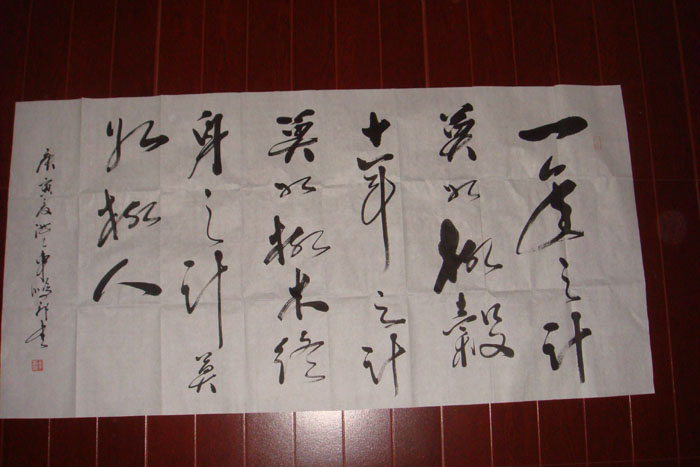 一歲之計
莫如樹穀
十年之計
莫如樹木終
身之計莫
如樹人
庚寅夏